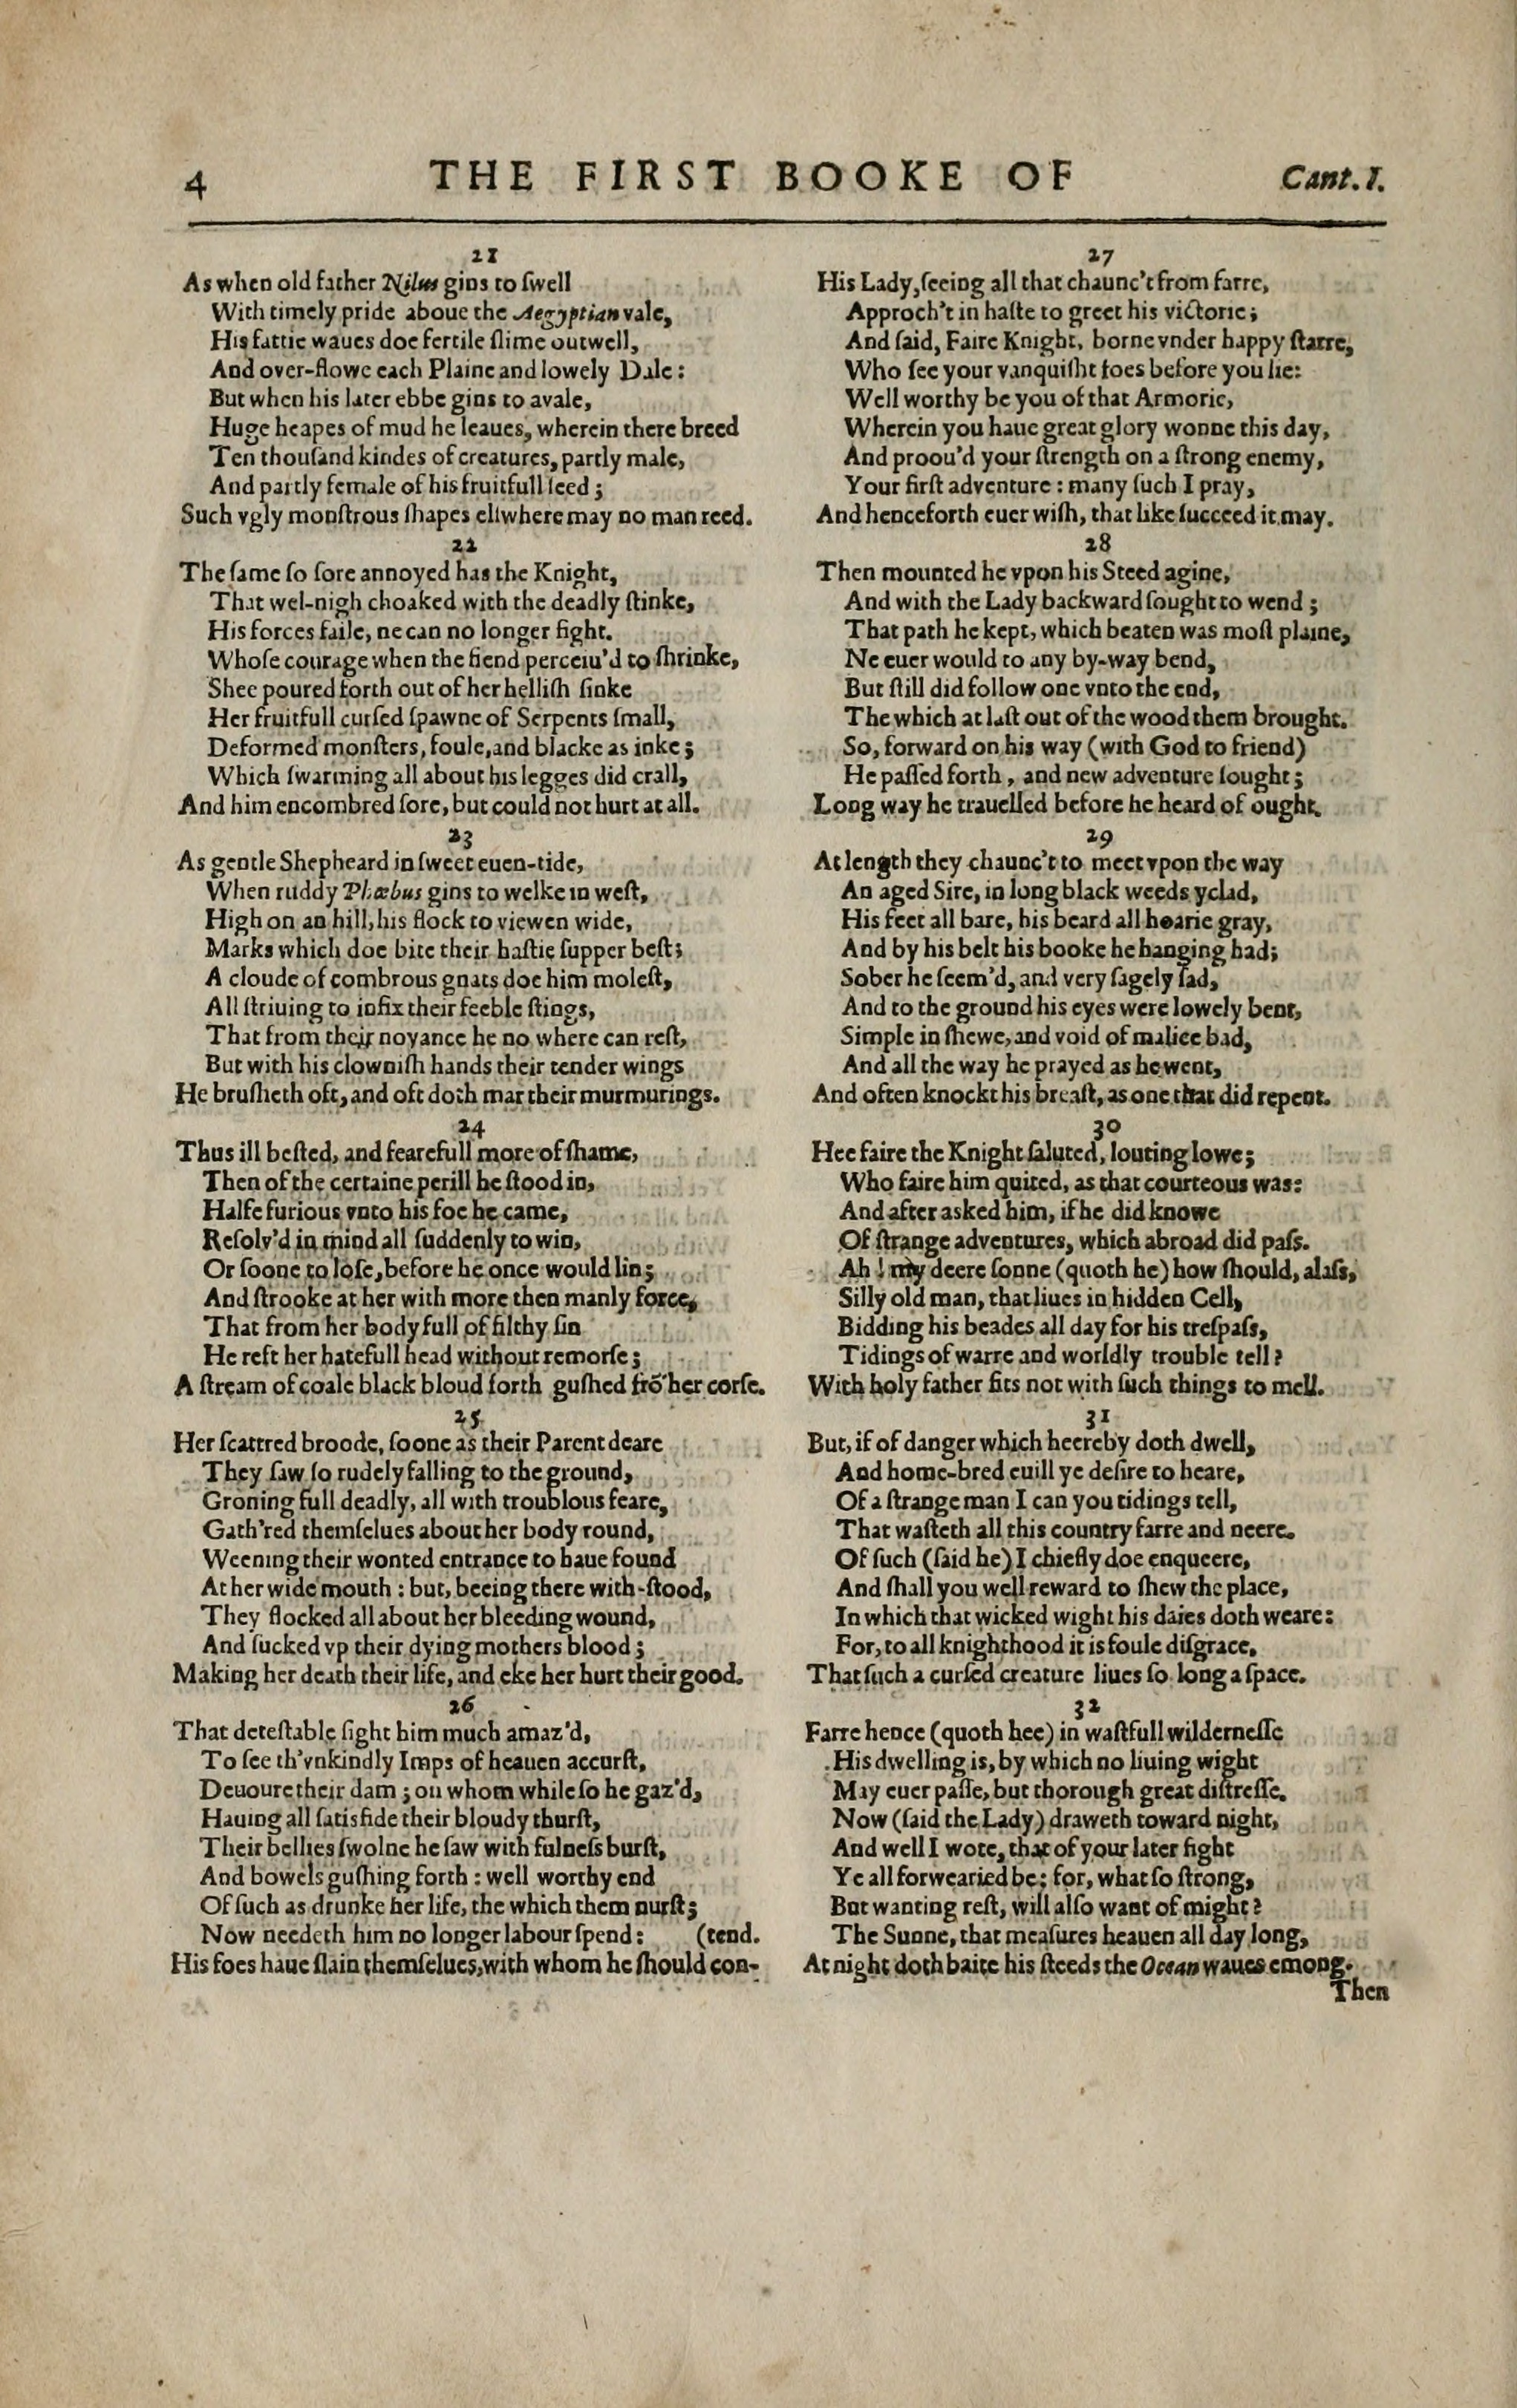 4 THE FIRST BOOKE OF Cant. I.
21
As when old father Nilus gins to ſwell
With timely pride aboue the Aegyptian vale,
His fattie waues doe fertile ſlime outwell,
And over-flowe each Plaine and lowely Dale:
But when his later ebbe gins to avale,
Huge heapes of mud he leaues, wherein there breed
Ten thouſand kindes of creatures, partly male,
And partly female of his fruitfull ſeed;
Such vgly monſtrous ſhapes elſwhere may no man reed.
22
The ſame ſo ſore annoyed has the Knight,
That wel-nigh choaked with the deadly ſtinke,
His forces faile, ne can no longer fight.
Whoſe courage when the fiend perceiu'd to ſhrinke,
Shee poured forth out of her helliſh ſinke
Her fruitfull curſed ſpawne of Serpents ſmall,
Deformed monſters, foule, and blacke as inke;
Which ſwarming all about his legges did crall,
And him encombred ſore, but could not hurt at all.
23
As gentle Shepheard in ſweet euen-tide,
When ruddy Phœbus gins to welke in weſt,
High on an hill, his flock to viewen wide,
Marks which doe bite their haſtie ſupper beſt;
A cloude of combrous gnats doe him moleſt,
All ſtriuing to infix their feeble ſtings,
That from their noyance he no where can reſt,
But with his clowniſh hands their tender wings
He bruſheth oft, and oft doth mar their murmurings.
24
Thus ill beſted, and fearefull more of ſhame,
Then of the certaine perill he ſtood in,
Halfe furious vnto his foe he came,
Reſolv'd in mind all ſuddenly to win,
Or ſoone to loſe, before he once would lin;
And ſtrooke at her with more then manly force,
That from her body full of filthy ſin
He reft her hatefull head without remorſe;
A ſtream of coale black bloud forth guſhed frō her corſe.
25
Her ſcattred broode, ſoone as their Parent deare
They ſaw ſo rudely falling to the ground,
Groning full deadly, all with troublous feare,
Gath'red themſelues about her body round,
Weening their wonted entrance to haue found
At her wide mouth: but, beeing there with-ſtood,
They flocked all about her bleeding wound,
And ſucked vp their dying mothers blood;
Making her death their life, and eke her hurt their good.
26
That deteſtable ſight him much amaz'd,
To ſee th'vnkindly Imps of heauen accurſt,
Deuoure their dam; on whom while ſo he gaz'd,
Hauing all ſatisfide their bloudy thurſt,
Their bellies ſwolne he ſaw with fulneſs burſt,
And bowels guſhing forth: well worthy end
Of ſuch as drunke her life, the which them nurſt;
Now needeth him no longer labour ſpend: (tend.
His foes haue ſlain themſelues, with whom he ſhould con-
27
His Lady, ſeeing all that chaunc't from farre,
Approch't in haſte to greet his victorie;
And ſaid, Faire Knight, borne vnder happy ſtarre,
Who ſee your vanquiſht foes before you lie:
Well worthy be you of that Armorie,
Wherein you haue great glory wonne this day,
And proou'd your ſtrength on a ſtrong enemy,
Your firſt adventure: many ſuch I pray,
And henceforth euer wiſh, that like ſucceed it may.
28
Then mounted he vpon his Steed agine,
And with the Lady backward ſought to wend;
That path he kept, which beaten was moſt plaine,
Ne euer would to any by-way bend,
But ſtill did follow one vnto the end,
The which at laſt out of the wood them brought.
So, forward on his way (with God to friend)
He paſſed forth, and new adventure ſought;
Long way he trauelled before he heard of ought.
29
At length they chaunc't to meet vpon the way
An aged Sire, in long black weeds yclad,
His feet all bare, his beard all hoarie gray,
And by his belt his booke he hanging had;
Sober he ſeem'd, and very ſagely ſad,
And to the ground his eyes were lowely bent,
Simple in ſhewe, and void of malice bad,
And all the way he prayed as he went,
And often knockt his breaſt, as one that did repent.
30
Hee faire the Knight ſaluted, louting lowe;
Who faire him quited, as that courteous was:
And after asked him, if he did knowe
Of ſtrange adventures, which abroad did paſs.
Ah! my deere ſonne (quoth he) how ſhould, alaſs,
Silly old man, that liues in hidden Cell,
Bidding his beades all day for his treſpaſs,
Tidings of warre and worldly trouble tell?
With holy father fits not with ſuch things to mell.
31
But, if of danger which heereby doth dwell,
And home-bred euill ye deſire to heare,
Of a ſtrange man I can you tidings tell,
That waſteth all this country farre and neere.
Of ſuch (ſaid he) I chiefly doe enqueere,
And ſhall you well reward to ſhew the place,
In which that wicked wight his daies doth weare:
For, to all knighthood it is foule diſgrace,
That ſuch a curſed creature liues ſo long a ſpace.
32
Farre hence (quoth hee) in waſtfull wilderneſſe
His dwelling is, by which no liuing wight
May euer paſſe, but thorough great diſtreſſe.
Now (ſaid the Lady) draweth toward night,
And well I wote, that of your later fight
Ye all forwearied be: for, what ſo ſtrong,
But wanting reſt, will alſo want of might?
The Sunne, that meaſures heauen all day long,
At night doth baite his ſteeds the Ocean waues emong.
Then